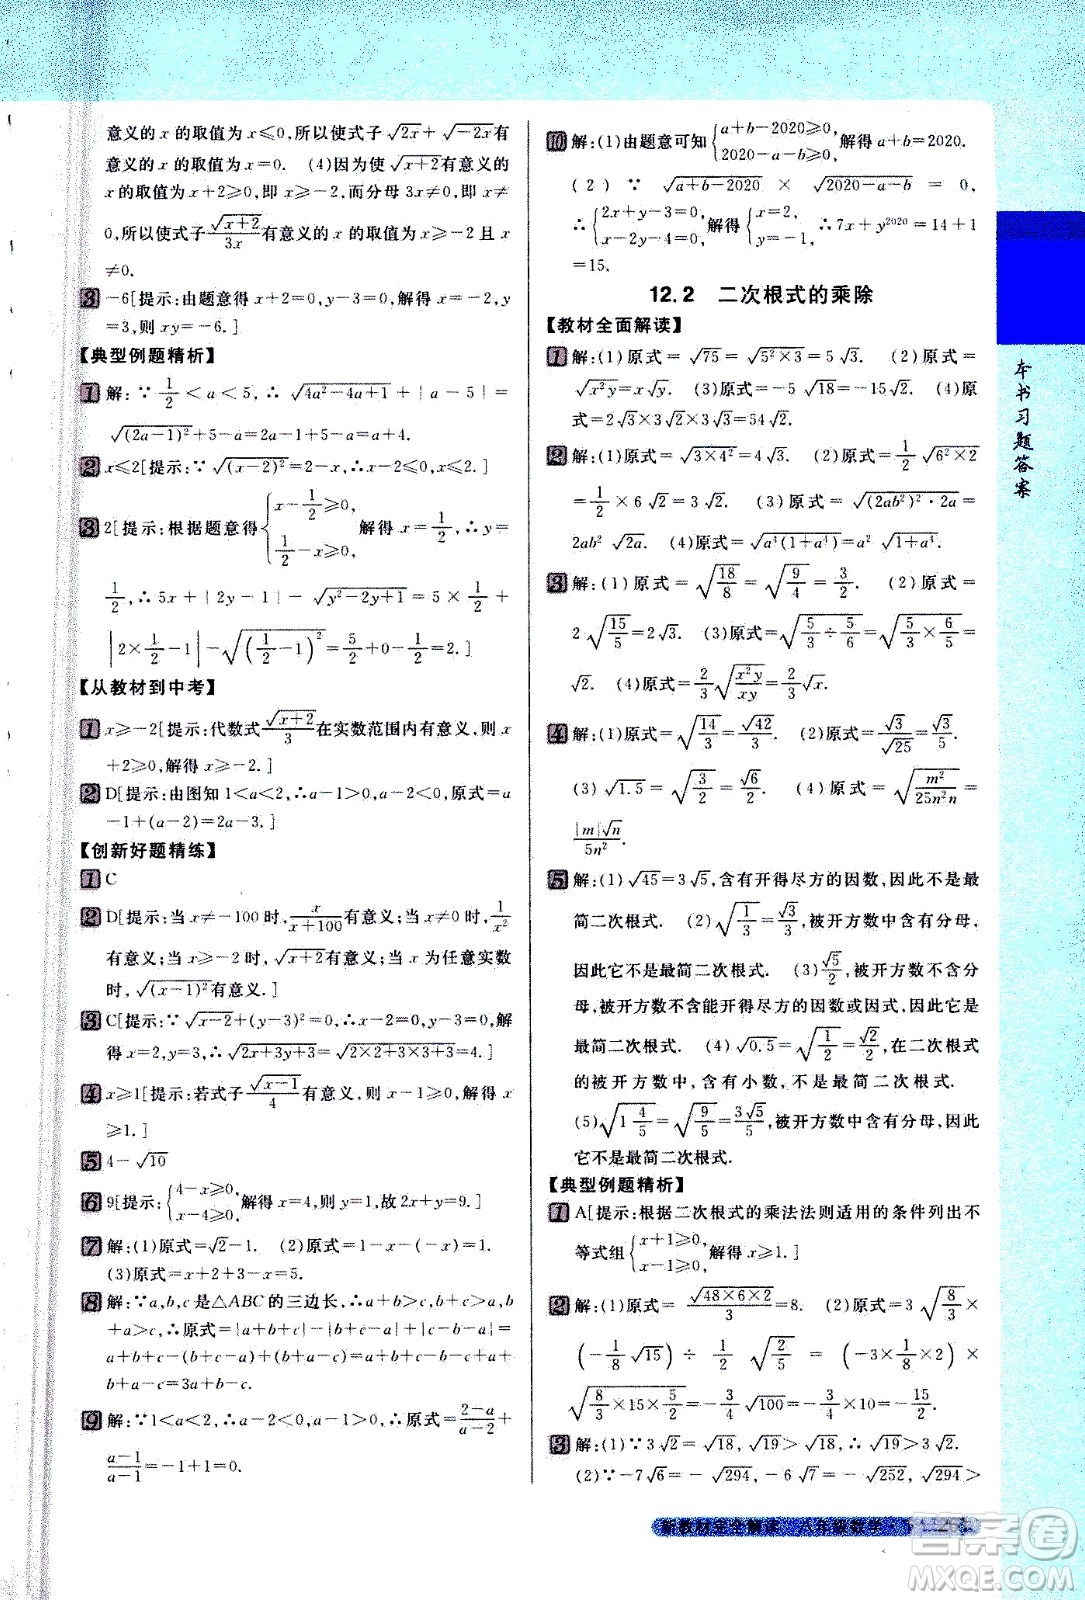 意义的 x 的取值为 x≤0,所以使式子 √(2x)+√(-2x)有
意义的 x 的取值为 x=0. (4)因为使√(x+2)有意义的
x 的取值为 x+2≥0,即 x≥-2,而分母 3x≠0,即 x≠
0,所以使式子√(x+2)/3x有意义的 x 的取值为 x≥-2 且 x
≠0.
3 -6[提示:由题意得 x+2=0,y-3=0,∴x=-2,y
=3,则 xy=-6.]
【典型例题精析】
1 解:∵1/2<a<5,∴√(4a²-4a+1)+|a-5|=
√((2a-1)²)+5-a=2a-1+5-a=a+4.
2 x≤2[提示:∵√((x-2)²)=2-x,∴x≤2.]
3 2[提示:根据题意得{x-1/2≥0, 1/2-x≥0, 解得 x=1/2,∴y=
1/2,∴5x+|2y-1|-√(y²-2y+1)=5×1/2+
|2×1/2-1|-√((1/2-1)²)=5/2-1/2=2.]
【从教材到中考】
1 x≥-2[提示:代数式√(x+2)/3在实数范围内有意义,则 x
+2≥0,解得 x≥-2.]
2 D[提示:由图知 1<a<2,∴a-1>0,a-2<0,原式=a
-1+(a-2)=2a-3.]
【创新好题精练】
1 C
2 D[提示:当 x≠-100 时,x/(x+100)有意义;当 x≠0 时,1/x²
有意义;当 x≥-2 时,√(x+2)有意义;当 x 为任意实数
时,√((x-1)²)有意义.]
3 C[提示:∵√(x-2)+(y-3)²=0,∴x-2=0,y-3=0,解
得 x=2,y=3,∴√(2x+3y+3)=√(2×2+3×3+3)=4.]
4 x≥1[提示:若式子√(x-1)/4有意义,则 x-1≥0,解得 x
≥1.]
5 4-√10
6 9[提示:{4-x≥0, x-4≥0, 解得 x=4,则 y=1,故 2x+y=9.]
7 解:(1)原式=√2-1. (2)原式=x+1-x=1.
(3)原式=x+2+3-x=5.
8 解:∵a,b,c是△ABC的三边长,∴a+b>c,b+c>a,b
+a>c,∴原式=|a+b+c|-|b+c-a|+|c-b-a|=
a+b+c-(b+c-a)+(b+a-c)=a+b+c-b-c+a+
b+a-c=3a+b-c.
9 解:∵1<a<2,∴a-2<0,a-1>0,∴原式=(2-a)/(a-2)+
(a-1)/(a-1)=-1+1=0.
10 解:(1)由题意可知{a+b-2020≥0, 2020-a-b≥0, 解得 a+b=2020.
(2)∵√(a+b-2020)×√(2020-a-b)=0,
∴{2x+y-3=0, x-2y-4=0, 解得{x=2, y=-1, ∴7x+y²⁰²⁰=14+1
=15.
12.2 二次根式的乘除
【教材全面解读】
1 解:(1)原式=√75=√(5²×3)=5√3. (2)原式=
√(x²y)=x√y. (3)原式=-5√18=-15√2. (4)原
式=2√3×3√2×3√3=54√2.
2 解:(1)原式=√(3×4²)=4√3. (2)原式=1/2√(6²×2)
=1/2×6√2=3√2. (3)原式=√((2ab²)²·2a)=
2ab²√(2a). (4)原式=√(a⁴(1+a⁴))=a²√(1+a⁴).
3 解:(1)原式=√(18/8)=√(9/4)=3/2. (2)原式=
2√(15/5)=2√3. (3)原式=√(5/3÷5/6)=√(5/3×6/5)=
√2. (4)原式=2/3√(x²y/xy)=2/3√x.
4 解:(1)原式=√(14/3)=√42/3. (2)原式=√3/√25=√3/5.
(3)√1.5=√(3/2)=√6/2. (4)原式=√(m²/25n²n)=
|m|√n/5n².
5 解:(1)√45=3√5,含有开得尽方的因数,因此不是最
简二次根式. (2)√(1/3)=√3/3,被开方数中含有分母,
因此它不是最简二次根式. (3)√5/2,被开方数不含分
母,被开方数不含能开得尽方的因数或因式,因此它是
最简二次根式. (4)√0.5=√(1/2)=√2/2,在二次根式
的被开方数中,含有小数,不是最简二次根式.
(5)√(1 4/5)=√(9/5)=3√5/5,被开方数中含有分母,因此
它不是最简二次根式.
【典型例题精析】
1 A[提示:根据二次根式的乘法法则适用的条件列出不
等式组{x+1≥0, x-1≥0, 解得 x≥1.]
2 解:(1)原式=√(48×6×2)/3=8. (2)原式=3√(8/3)×
(-1/8√15)÷1/2√(2/5)=(-3×1/8×2)×
√(8/3×15×5/2)=-3/4×√100=-3/4×10=-15/2.
3 解:(1)∵3√2=√18,√19>√18,∴√19>3√2.
(2)∵-7√6=-√294,-6√7=-√252,√294>
本书习题答案
新教材完全解读 八年级数学·下
答案卷
MXQE.COM